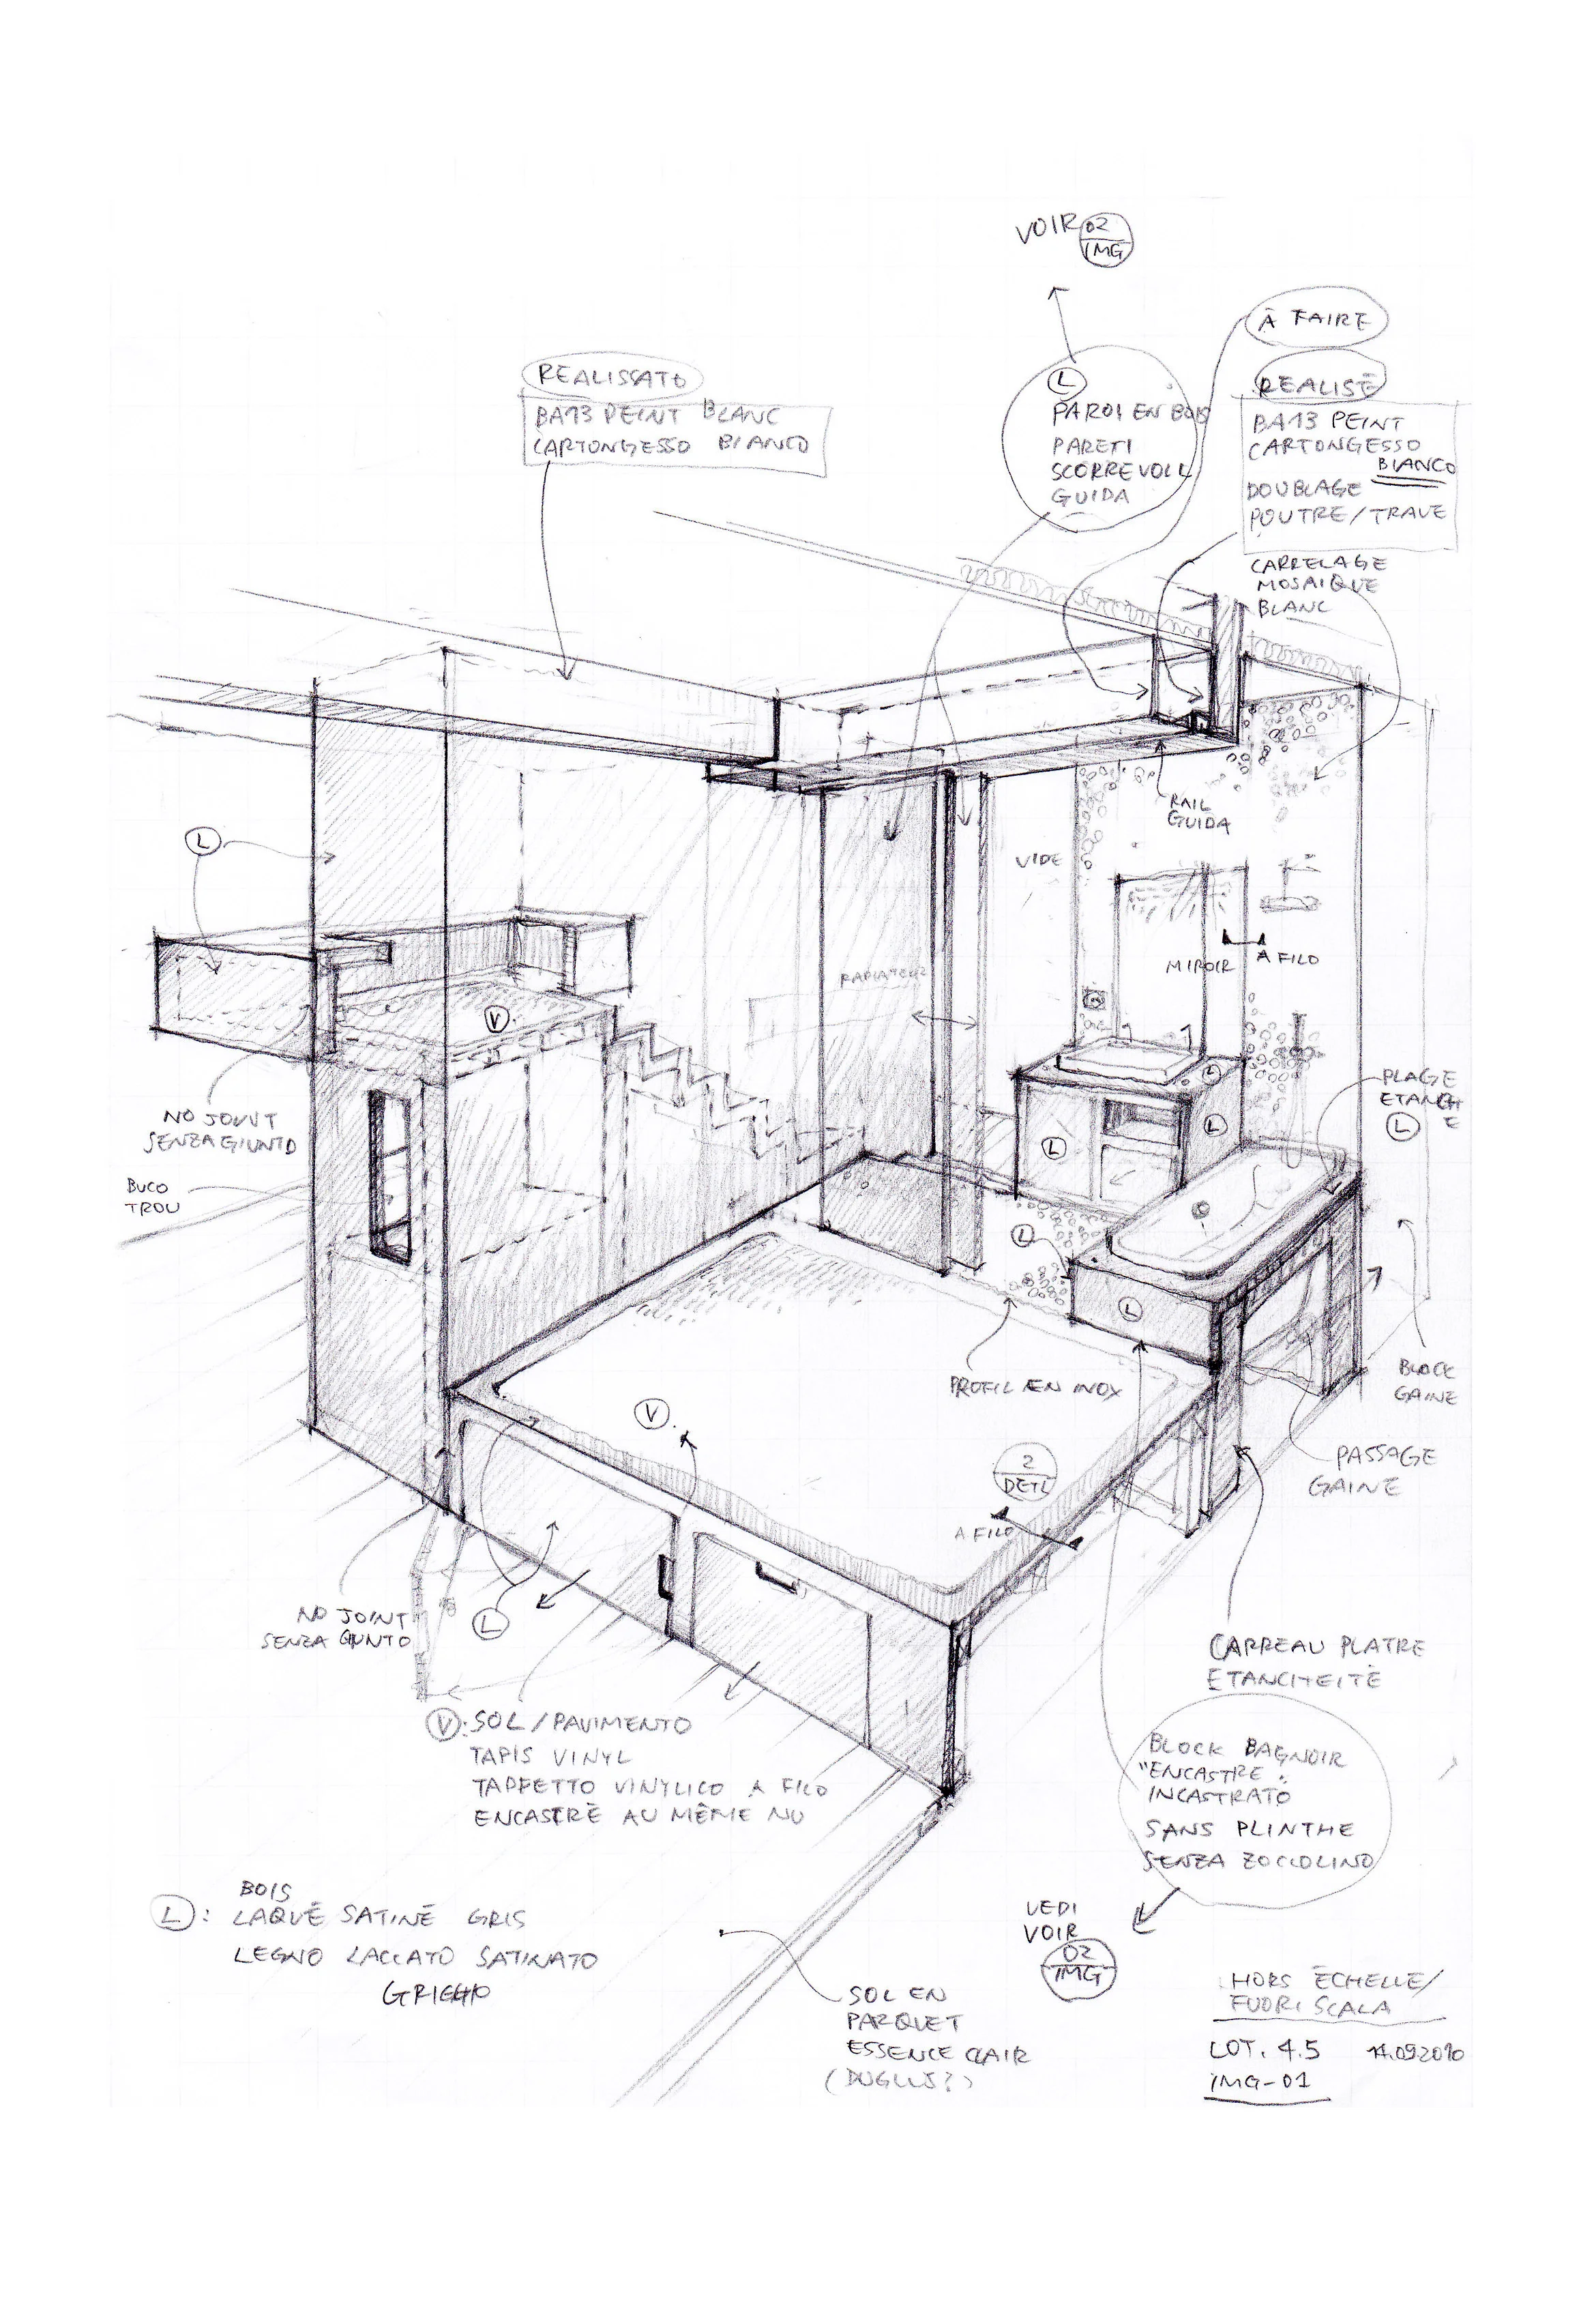 VOIR 02
IMG
À FAIRE
REALISSATO
BA13 PEINT BLANC
CARTONGESSO BIANCO
L
PAROI EN BOIS
PARETI
SCORREVOLI
GUIDA
REALISÉ
BA13 PEINT
CARTONGESSO
BIANCO
DOUBLAGE
POUTRE/TRAVE
CARRELAGE
MOSAIQUE
BLANC
RAIL
GUIDA
VIDE
L
MIROIR
A FILO
RADIATEUR
V
L
L
L
PLAGE
ETANCH
E
L
NO JOINT
SENZA GIUNTO
BUCO
TROU
L
L
PROFIL EN INOX
BLOCK
GAINE
V
2
DETL
A FILO
PASSAGE
GAINE
NO JOINT
SENZA GIUNTO
L
CARREAU PLATRE
ETANCHEITÉ
V: SOL/PAVIMENTO
TAPIS VINYL
TAPPETO VINYLICO A FILO
ENCASTRÉ AU MÊME NU
BLOCK BAGNOIR
"ENCASTRE"
INCASTRATO
SANS PLINTHE
SENZA ZOCCOLINO
BOIS
L: LAQUÉ SATINÉ GRIS
LEGNO LACCATO SATINATO
GRIGGIO
VEDI
VOIR
02
IMG
SOL EN
PARQUET
ESSENCE CLAIR
HORS ÉCHELLE/
FUORI SCALA
LOT. 4.5 14.09.2010
IMG-01